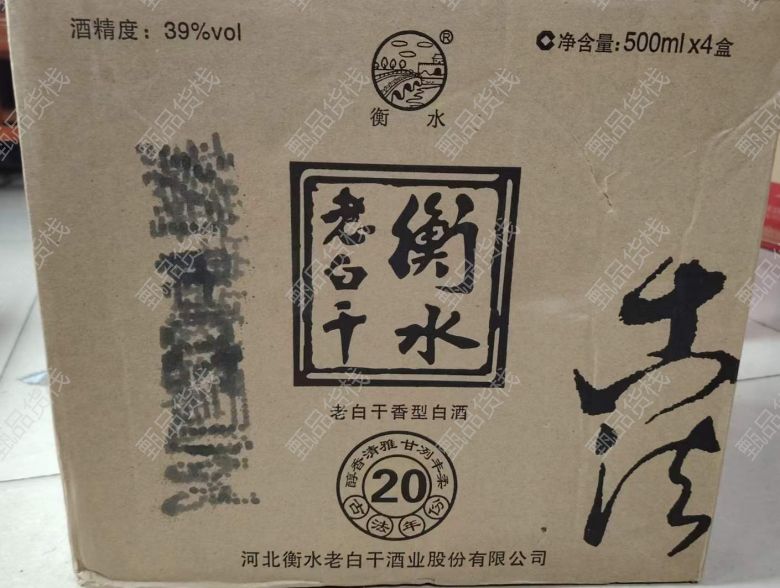 酒精度：39%vol
净含量：500ml x4盒
®
衡 水
衡水
老白干
古法
老白干香型白酒
醇香清雅 甘洌丰柔
20
古法年份
河北衡水老白干酒业股份有限公司
甄品货栈